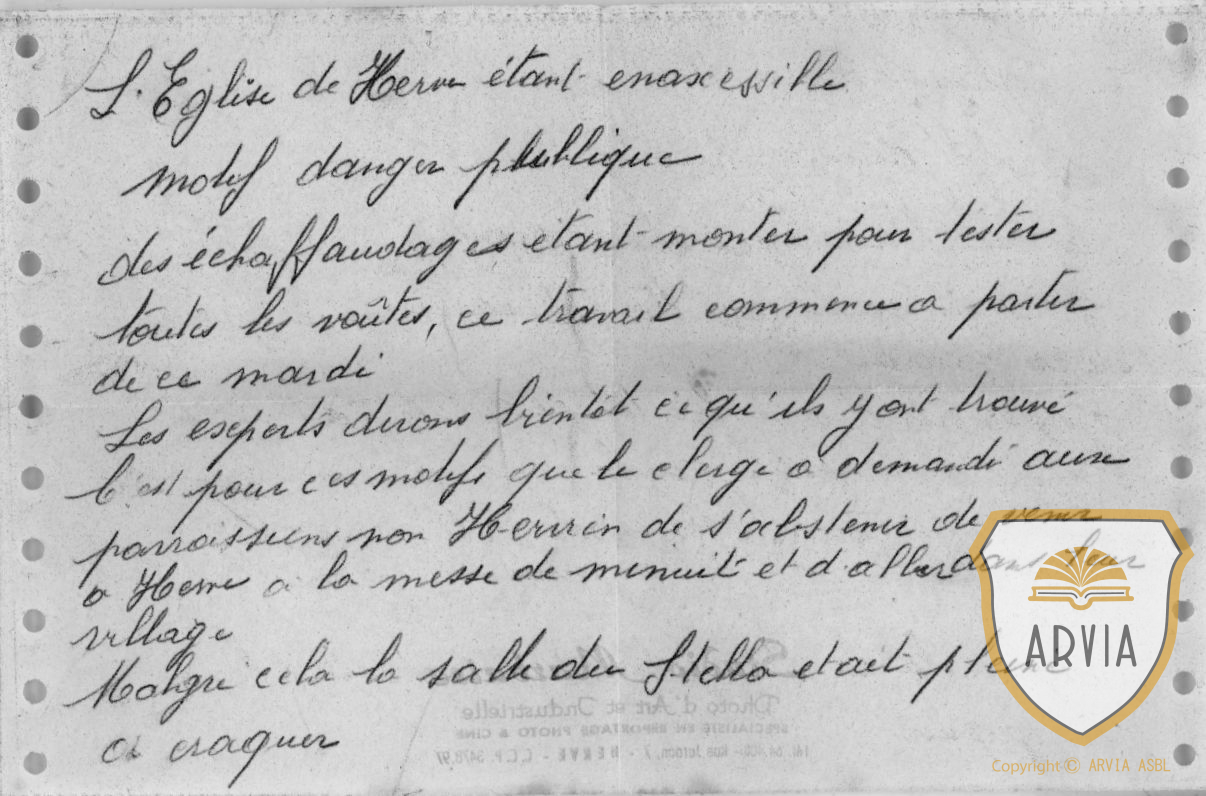 L'Eglise de Herve étant enaxessille
motif danger plublique
des échaffaudages étant monter pour tester
toutes les voûtes, ce travail commence a parter
de ce mardi
Les experts dirons bientôt ce qu'ils y ont trouvé
C'est pour ces motifs que le clergé a demandé aux
parroissiens non Hervien de s'abstenir de venir
a Herve a la messe de minuit et d'aller dans leur
village
Malgré cela la salle du Stella etait pleine
a craquer
Photo d'Art et Industrielle
SPÉCIALISTE EN REPORTAGE PHOTO & CINÉ
HERVE - C.C.P.
ARVIA
Copyright © ARVIA ASBL